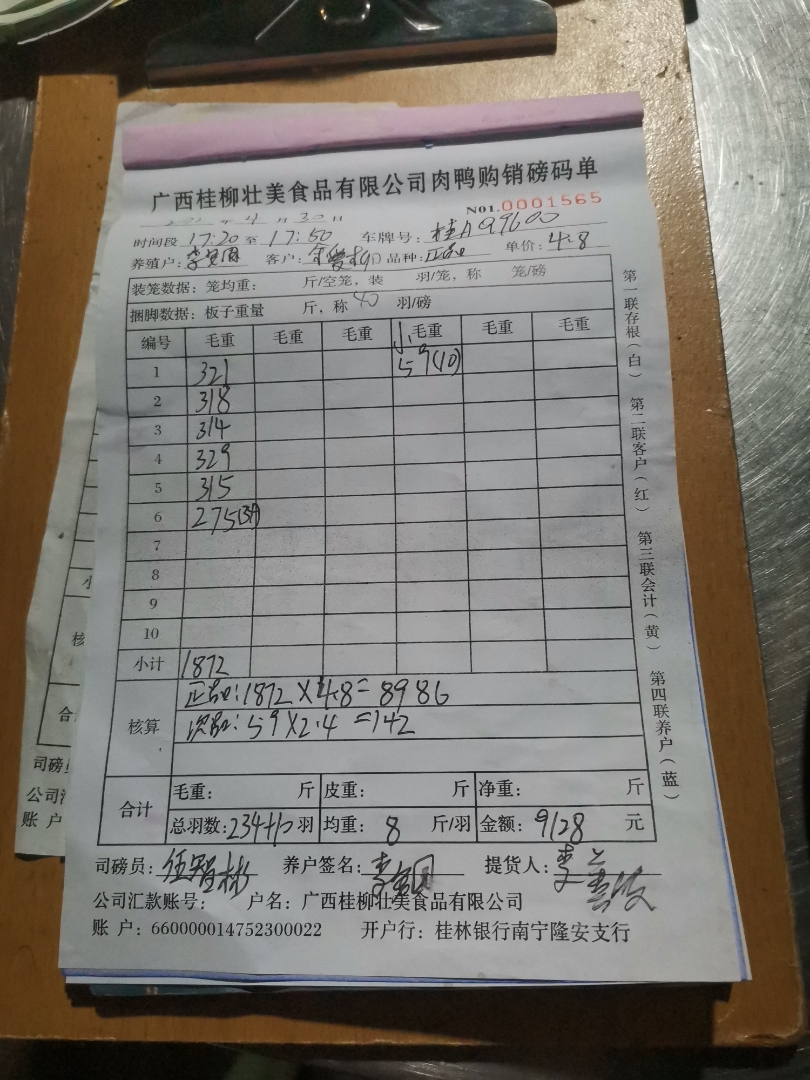 广西桂柳壮美食品有限公司肉鸭购销磅码单
年 4 月 30 日 N01.0001565
时间段 17:20 至 17:50 车牌号: 桂A99600
养殖户: 客户: 品种: 正品 单价: 4.8
装笼数据: 笼均重: 斤/空笼, 装 羽/笼, 称 笼/磅
捆脚数据: 板子重量 斤, 称 40 羽/磅
编号 毛重 毛重 毛重 小毛重 毛重 毛重
1 321 59(10)
2 318
3 314
4 329
5 315
6 275(34)
7
8
9
10
小计 1872
核算 正品:1872×4.8=8986
次品:59×2.4=142
合计 毛重: 斤 皮重: 斤 净重: 斤
总羽数:234+10 羽 均重: 8 斤/羽 金额: 9128 元
司磅员: 养户签名: 提货人:
公司汇款账号: 户名: 广西桂柳壮美食品有限公司
账 户: 660000014752300022 开户行: 桂林银行南宁隆安支行
第一联存根(白) 第二联客户(红) 第三联会计(黄) 第四联养户(蓝)
小
核
合
司磅员
公司汇
账 户